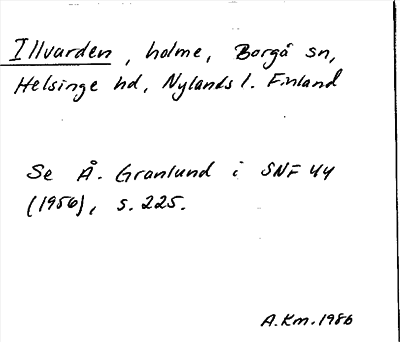 Illvarden, holme, Borgå sn,
Helsinge hd, Nylands l. Finland
Se Å. Granlund i SNF 44
(1956), s. 225.
A.Km.1986